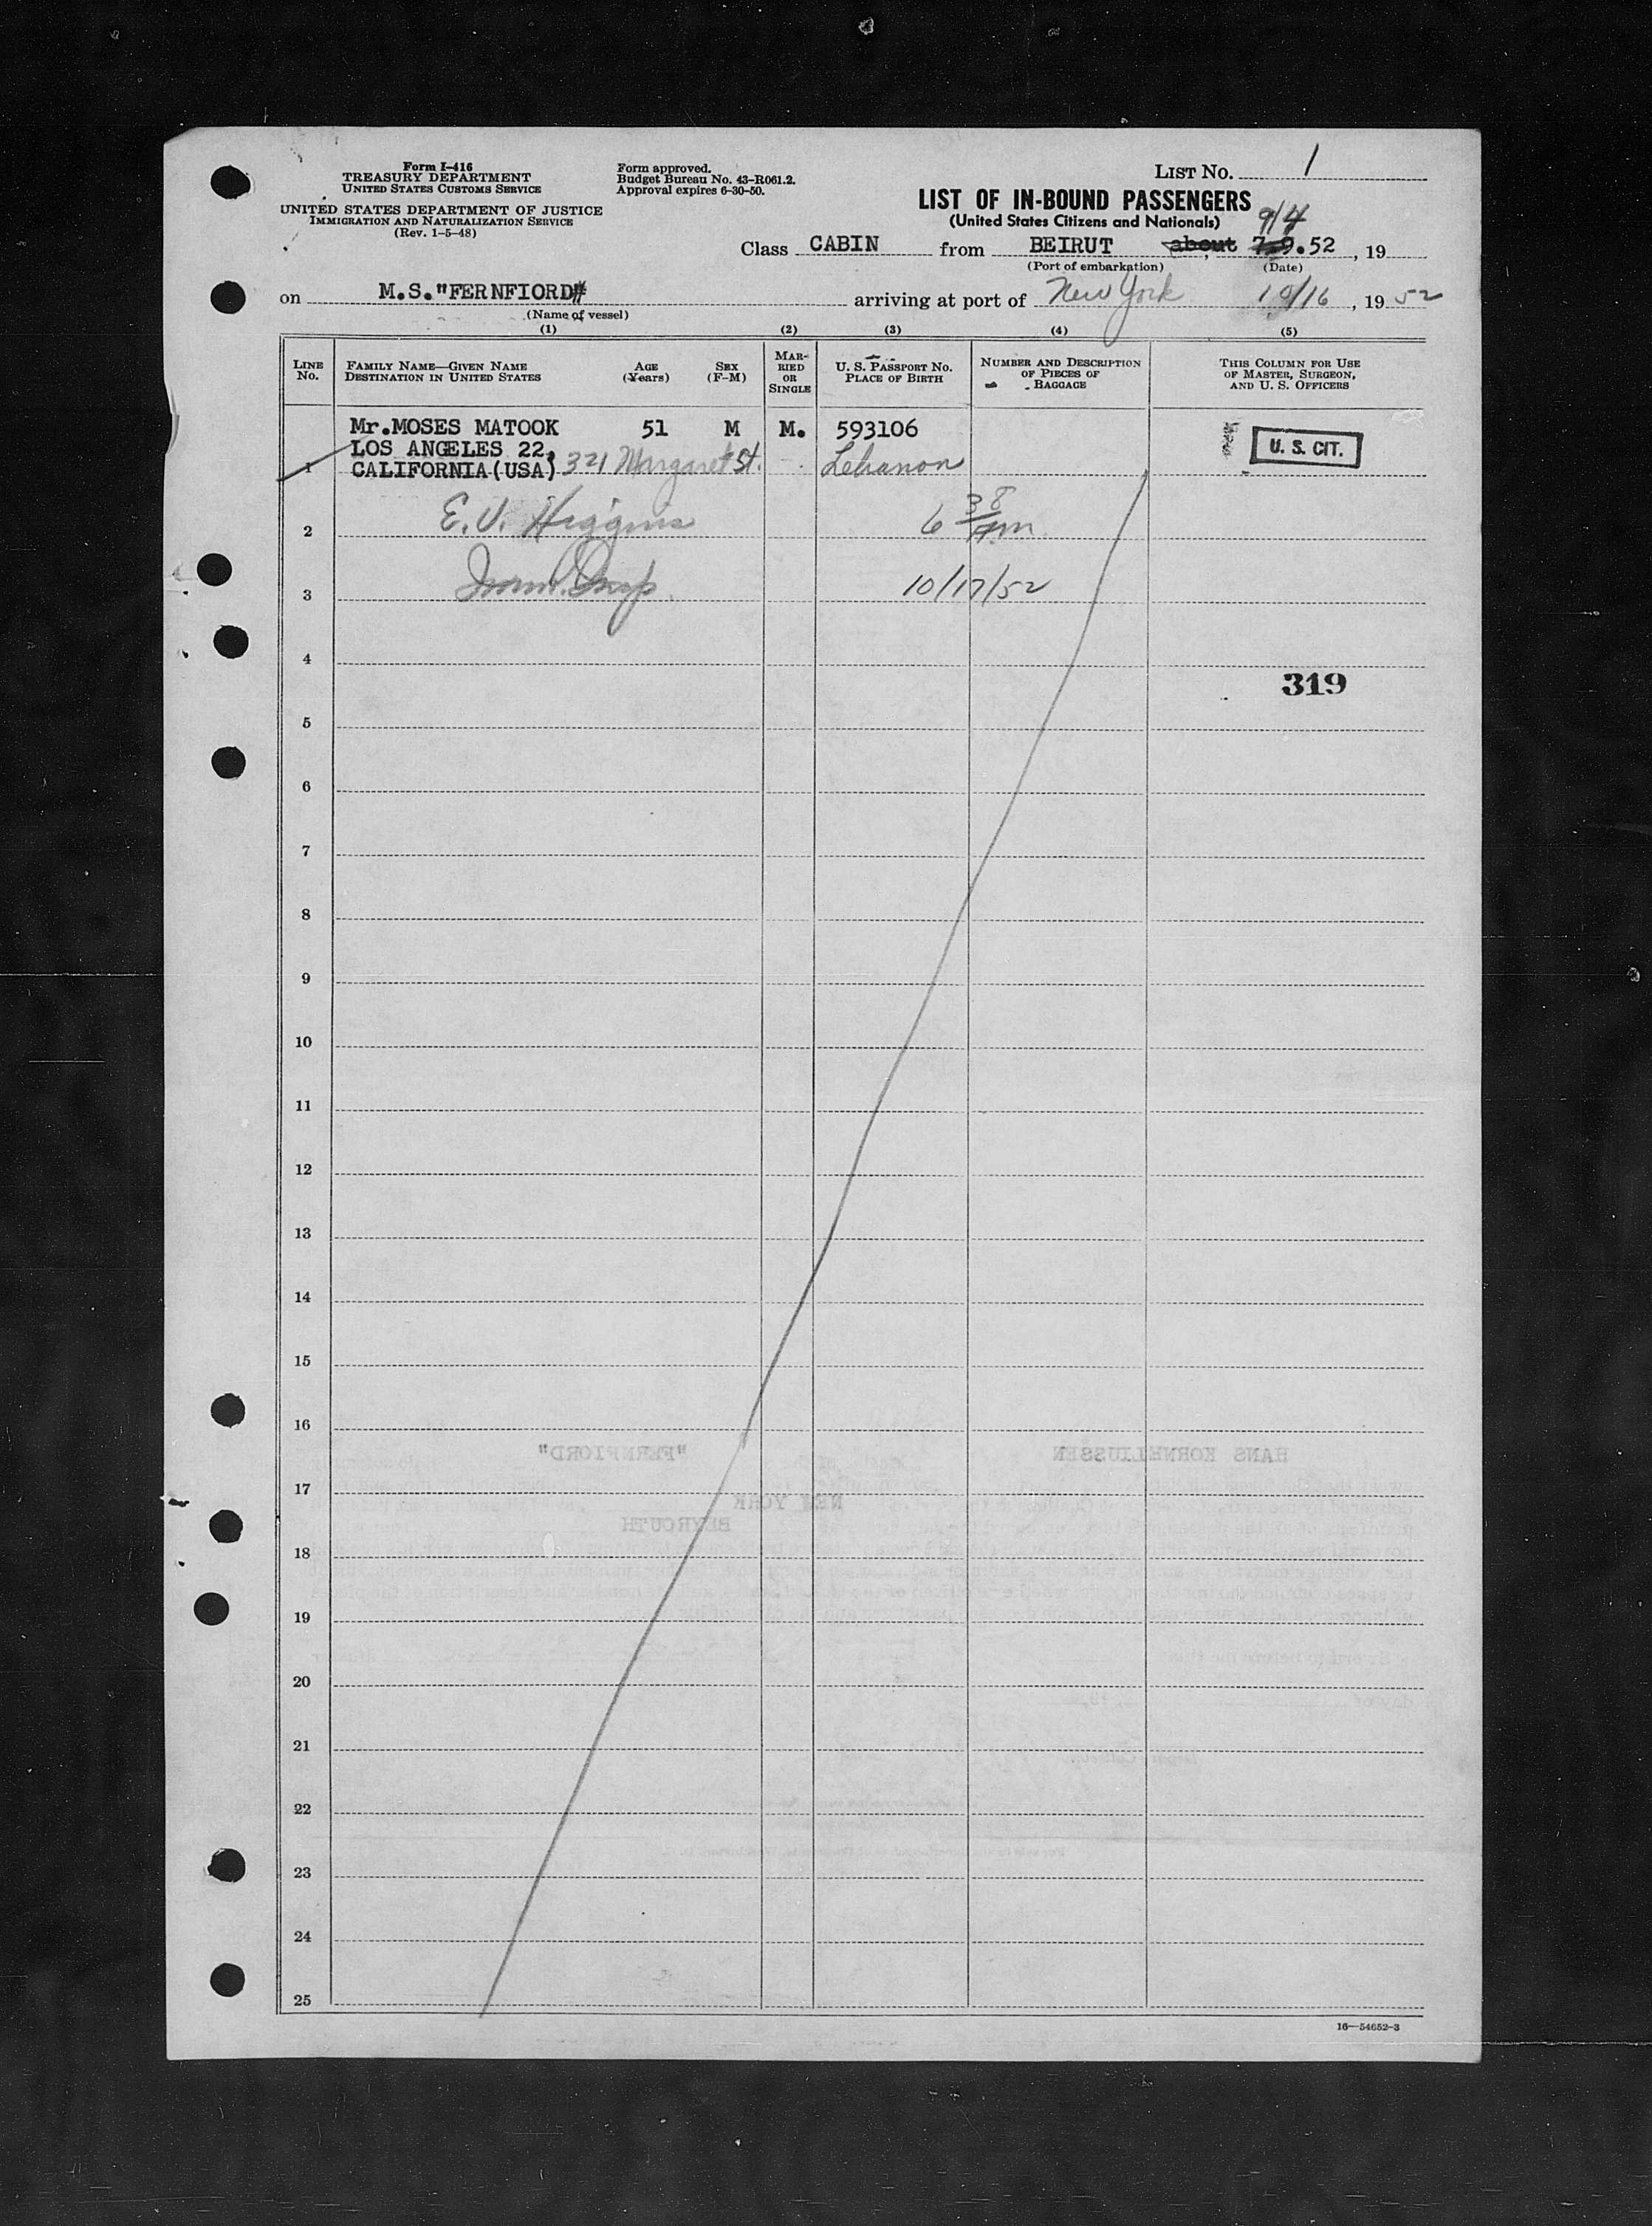 Form I-416
TREASURY DEPARTMENT
UNITED STATES CUSTOMS SERVICE
UNITED STATES DEPARTMENT OF JUSTICE
IMMIGRATION AND NATURALIZATION SERVICE
(Rev. 1-5-48)
Form approved.
Budget Bureau No. 43-R061.2.
Approval expires 6-30-50.
LIST No. 1
LIST OF IN-BOUND PASSENGERS
(United States Citizens and Nationals)
9/4
Class CABIN from BEIRUT about 7.9.52, 19
(Port of embarkation) (Date)
on M.S."FERNFIORD" arriving at port of New York 10/16, 19 52
(Name of vessel)
(1) (2) (3) (4) (5)
LINE No.
FAMILY NAME—GIVEN NAME
DESTINATION IN UNITED STATES
AGE (Years)
SEX (F-M)
MARRIED OR SINGLE
U. S. PASSPORT No.
PLACE OF BIRTH
NUMBER AND DESCRIPTION OF PIECES OF BAGGAGE
THIS COLUMN FOR USE OF MASTER, SURGEON, AND U. S. OFFICERS
Mr.MOSES MATOOK 51 M M. 593106
LOS ANGELES 22,
1 CALIFORNIA(USA) 321 Margaret St. Lebanon
U. S. CIT.
2 E. V. Higgins 6 38 Pm
3 Imm. Insp. 10/17/52
4
319
5
6
7
8
9
10
11
12
13
14
15
16
"FERNFIORD" HANS KORNELIUSSEN
17
NEW YORK
BEYROUTH
18
19
20
21
22
23
24
25
16—54652-3